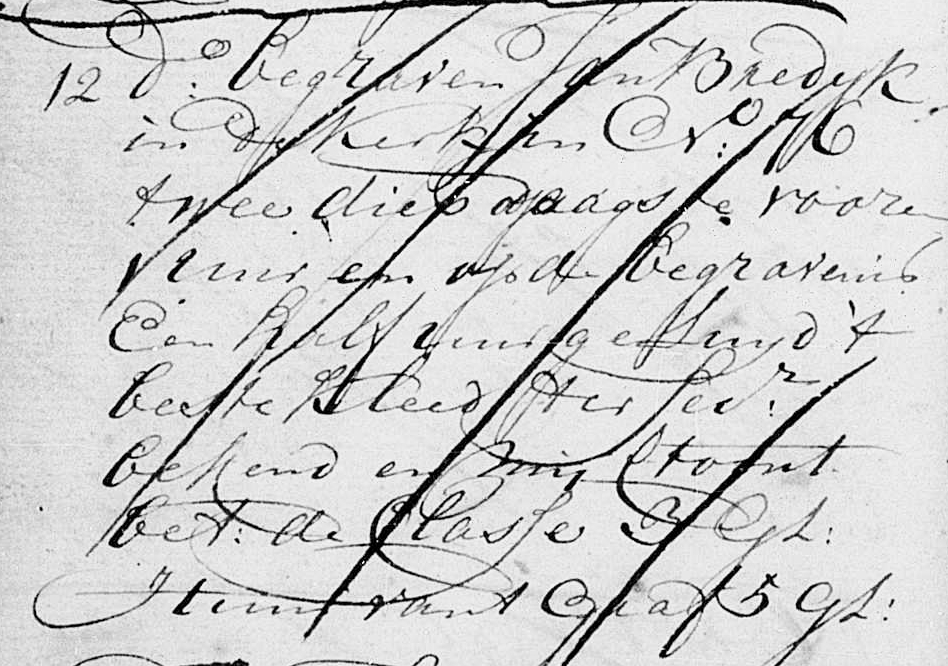 12 d:o begraven Jan Bredyk
in de kerk in No: 76
twee diep daags te voore
1 uur en op de begravenis
Een half uur geluyd 't
beste kleed
bekend en
bet: de Classe 3 Gl:
Item vant Graf 5 Gl: